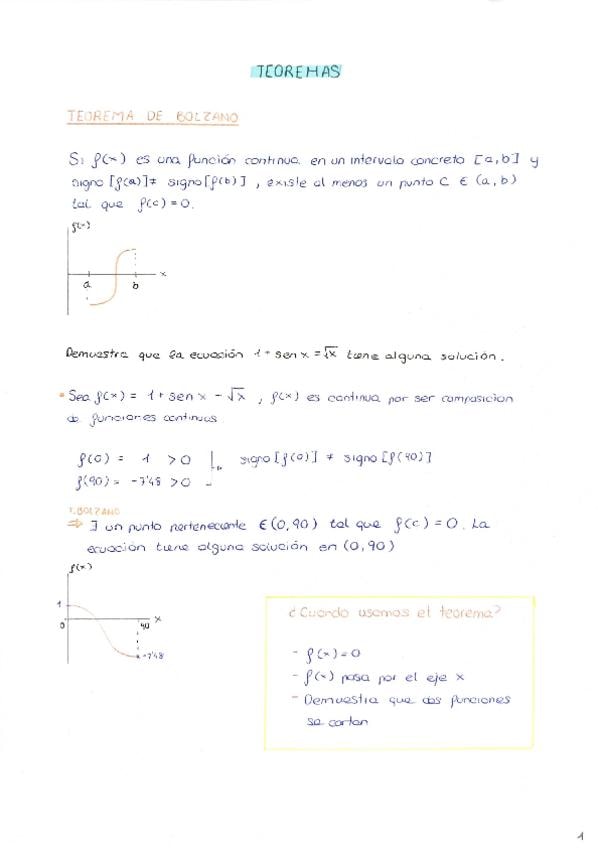 TEOREMAS
TEOREMA DE BOLZANO
Si f(x) es una función continua en un intervalo concreto [a,b] y
signo [f(a)] ≠ signo [f(b)], existe al menos un punto C ∈ (a,b)
tal que f(c) = 0.
f(x)
a b x
Demuestra que la ecuación 1+ sen x = √x tiene alguna solución.
• Sea f(x) = 1 + sen x - √x , f(x) es continua por ser composición
de funciones continuas.
f(0) = 1 > 0 signo [f(0)] ≠ signo [f(90)]
f(90) = -7'48 > 0
T. BOLZANO
⇒ ∃ un punto perteneciente ∈ (0,90) tal que f(c) = 0. La
ecuación tiene alguna solución en (0,90)
f(x)
1
0 90 x
-7'48
¿Cuando usamos el teorema?
- f(x) = 0
- f(x) pasa por el eje x
- Demuestra que dos funciones
se cortan
1